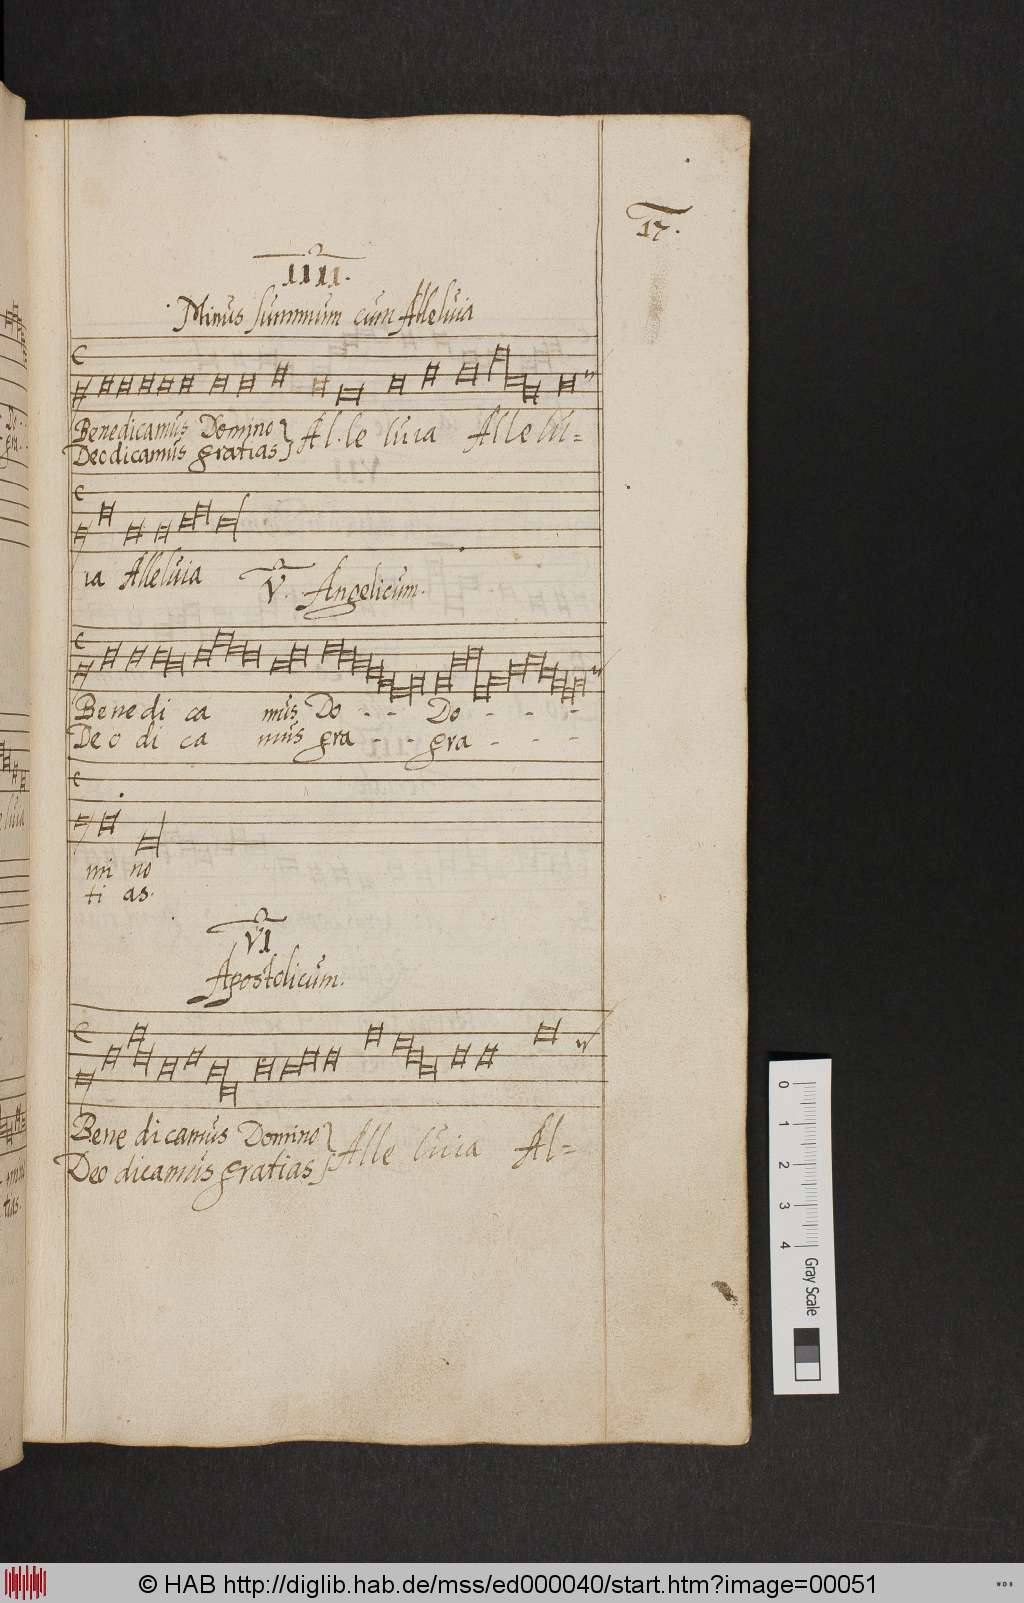 17.
IIII.
Minus summum cum Alleluia
Benedicamus Domino } Al-le luia Allelu=
Deo dicamus gratias
ia Alleluia
V. Angelicum.
Bene di ca mus Do - - Do - - - -
De o di ca mus gra - - gra - - - -
mi no
ti as.
VI
Apostolicum.
Bene dicamus Domino } Alle luia Al=
Deo dicamus gratias
0 1 2 3 4
Gray Scale
© HAB http://diglib.hab.de/mss/ed000040/start.htm?image=00051